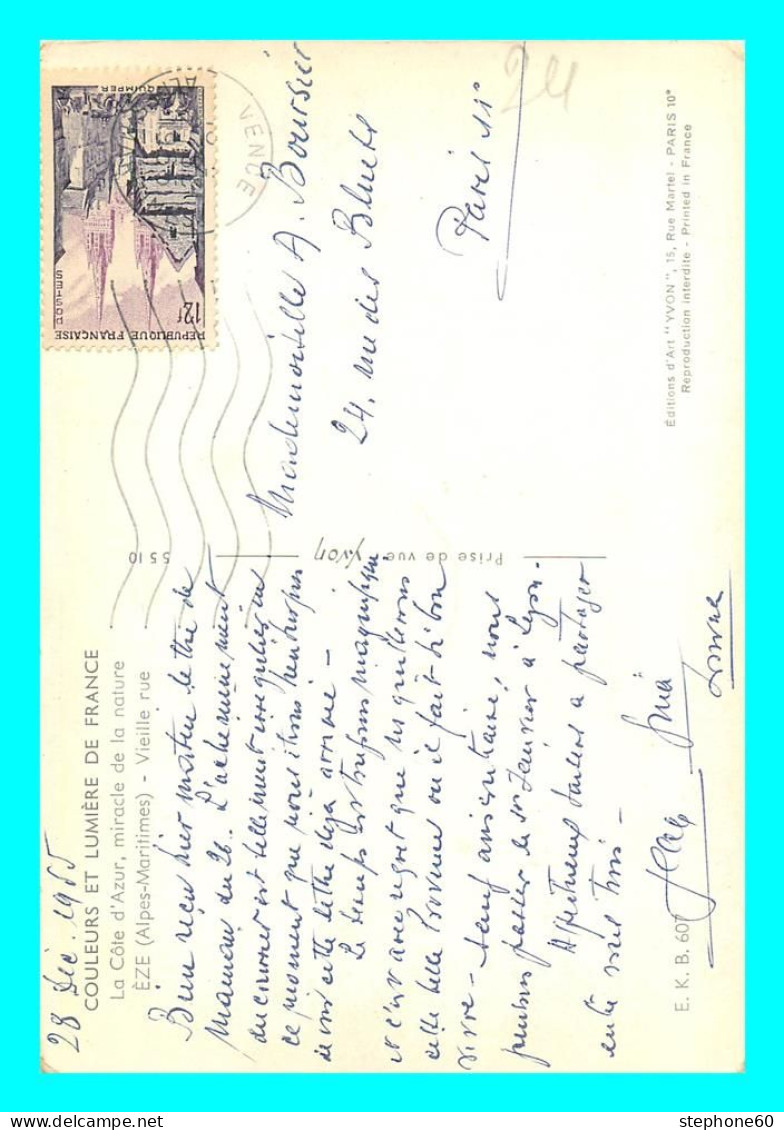 28 Déc. 1955
COULEURS ET LUMIÈRE DE FRANCE
La Côte d'Azur, miracle de la nature
ÈZE (Alpes-Maritimes) - Vieille rue
Bien reçu hier matin lettre de
Maman du 26. L'acheminement
du courrier est tellement irrégulier en
ce moment que nous étions
de voir cette lettre déjà arrivée -
Le temps est toujours magnifique
et c'est avec regret que nous quitterons
cette belle Provence où il fait si bon
vivre - Sauf avis contraire, nous
pensons passer le 1er Janvier à Lyon.
Affectueux baisers à partager
entre vous trois -
E. K. B. 607
5510
Prise de vue Yvon
REPUBLIQUE FRANÇAISE
12f
POSTES
QUIMPER
VENCE
Mademoiselle A. Boursier
24, rue des Bluets
Paris 11e
24
Éditions d'Art "YVON", 15, Rue Martel - PARIS 10e
Reproduction interdite - Printed in France
stephone60